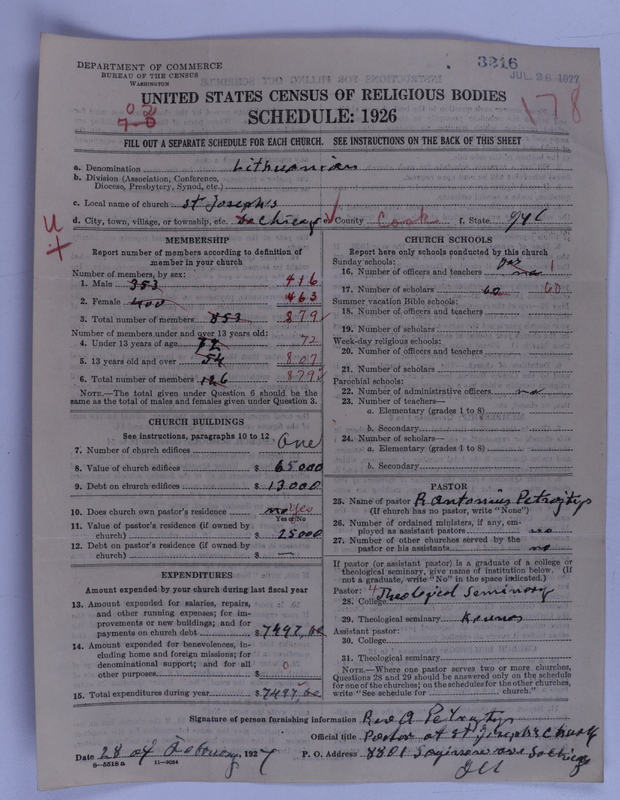 DEPARTMENT OF COMMERCE
BUREAU OF THE CENSUS
WASHINGTON
3216
JUL 28 1927
UNITED STATES CENSUS OF RELIGIOUS BODIES
SCHEDULE: 1926
178
FILL OUT A SEPARATE SCHEDULE FOR EACH CHURCH. SEE INSTRUCTIONS ON THE BACK OF THIS SHEET
a. Denomination Lithuanian
b. Division (Association, Conference, Diocese, Presbytery, Synod, etc.)
c. Local name of church St Joseph's
d. City, town, village, or township, etc. So Chicago e. County Cook f. State
MEMBERSHIP
Report number of members according to definition of member in your church
Number of members, by sex:
1. Male 353 416
2. Female 400 463
3. Total number of members 853 879
Number of members under and over 13 years old:
4. Under 13 years of age 72 72
5. 13 years old and over 54 807
6. Total number of members 126 879
NOTE.—The total given under Question 6 should be the same as the total of males and females given under Question 3.
CHURCH BUILDINGS
See instructions, paragraphs 10 to 12
7. Number of church edifices One
8. Value of church edifices $ 65000
9. Debt on church edifices $ 13000
10. Does church own pastor's residence no Yes
Yes or No
11. Value of pastor's residence (if owned by church) $ 25000
12. Debt on pastor's residence (if owned by church) $ —
EXPENDITURES
Amount expended by your church during last fiscal year
13. Amount expended for salaries, repairs, and other running expenses; for improvements or new buildings; and for payments on church debt $ 7497,00
14. Amount expended for benevolences, including home and foreign missions; for denominational support; and for all other purposes $ 0
15. Total expenditures during year $ 7497,00
CHURCH SCHOOLS
Report here only schools conducted by this church
Sunday schools:
16. Number of officers and teachers no 1
17. Number of scholars 60 60
Summer vacation Bible schools:
18. Number of officers and teachers
19. Number of scholars
Week-day religious schools:
20. Number of officers and teachers
21. Number of scholars
Parochial schools:
22. Number of administrative officers no
23. Number of teachers—
a. Elementary (grades 1 to 8)
b. Secondary
24. Number of scholars—
a. Elementary (grades 1 to 8)
b. Secondary
PASTOR
25. Name of pastor
(If church has no pastor, write "None")
26. Number of ordained ministers, if any, employed as assistant pastors no
27. Number of other churches served by the pastor or his assistants no
If pastor (or assistant pastor) is a graduate of a college or theological seminary, give name of institution below. (If not a graduate, write "No" in the space indicated.)
Pastor: Theological Seminary
28. College
29. Theological seminary Kaunas
Assistant pastor:
30. College
31. Theological seminary
NOTE.—Where one pastor serves two or more churches, Questions 28 and 29 should be answered only on the schedule for one of the churches; on the schedules for the other churches, write "See schedule for church."
Signature of person furnishing information Rev A
Official title Pastor of St Joseph's Church
Date 28 of February, 1927 P. O. Address 8801 Saginaw ave So Chicago
Ill
8—5518 a 11—9054